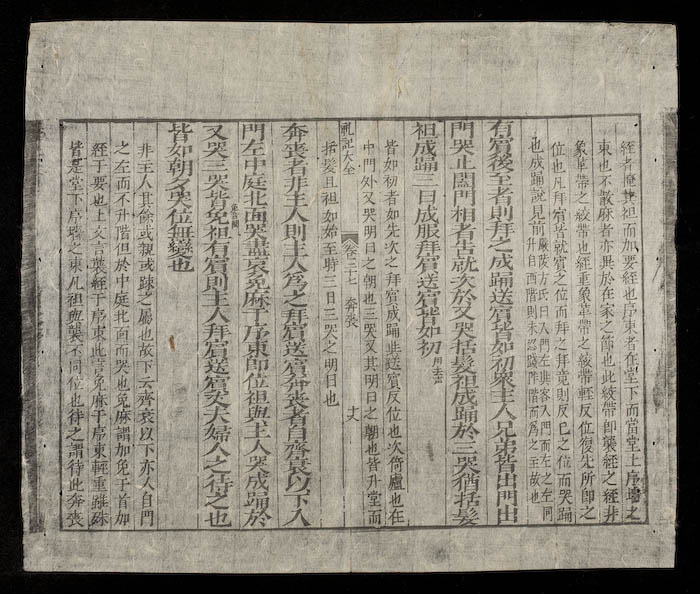 絰者掩其袒而加要絰也序東者在堂下而當堂上序墻之
東也不散麻者亦異於在家之節也此絞帶即襲絰之絰非
象革帶之絞帶也絰重象革帶之絞帶輕反位復先所即之
位也凡拜賓皆就賓之位而拜之拜竟則反已之位而哭踊
也成踊說見前
嚴陵方氏曰入門左與客入門而左之左同
升自西階則未忍踐阼階而為之主故也
有賓後至者則拜之成踊送賓皆如初衆主人兄弟皆出門出
門哭止闔門相者告就次於又哭括髮袒成踊於三哭猶括髮
袒成踊三日成服拜賓送賓皆如初
相去聲
皆如初者如先次之拜賓成踊與送賓反位也次倚廬也在
中門外又哭明日之朝也三哭又其明日之朝也皆升堂而
礼記大全 卷三十七 奔喪 十六
括髮且袒如始至時三日三哭之明日也
奔喪者非主人則主人爲之拜賓送賓奔喪者自齊衰以下入
門左中庭北面哭盡哀免麻于序東即位袒與主人哭成踊於
又哭三哭皆免袒有賓則主人拜賓送賓丈夫婦人之待之也
皆如朝夕哭位無變也
非主人其餘或親或踈之屬也故下云齊衰以下亦入自門
之左而不升階但於中庭北面而哭也免麻謂加免于首加
絰于要也上文言襲絰于序東此言免麻于序東輕重雖殊
皆是堂下序墻之東凡袒與襲不同位也待之謂待此奔喪